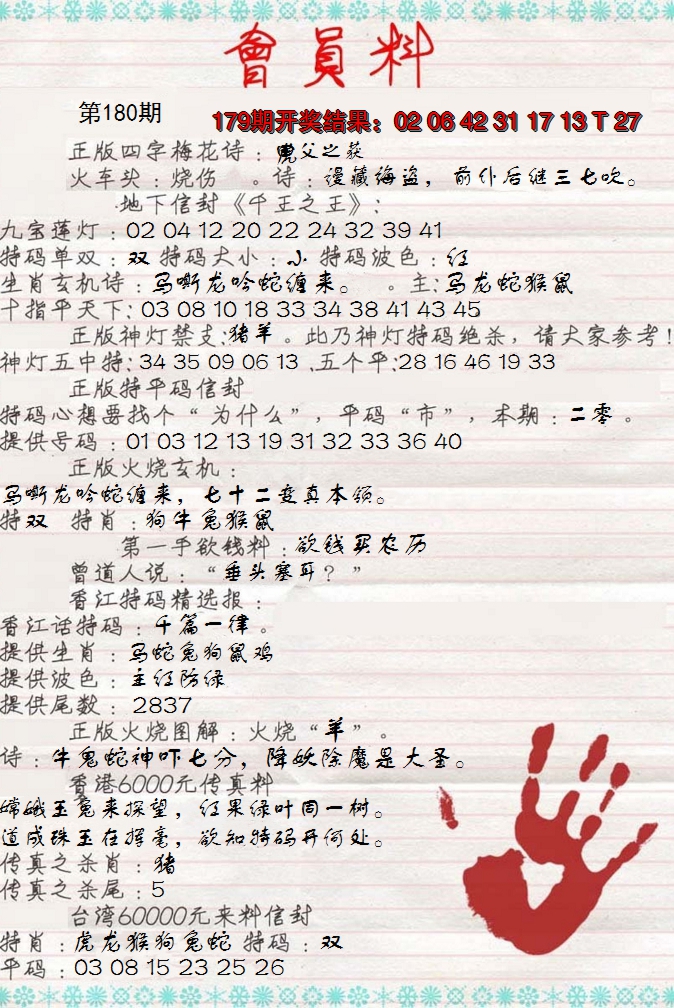 會員料
第180期
179期开奖结果：02 06 42 31 17 13 T 27
正版四字梅花诗：虎父之获
火车头：烧伤 。诗：漫藏海盗，前仆后继三七吹。
地下信封《千王之王》:
九宝莲灯：02 04 12 20 22 24 32 39 41
特码单双：双 特码大小：小 特码波色：红
生肖玄机诗：马嘶龙吟蛇缠来。 。主:马龙蛇猴鼠
十指平天下: 03 08 10 18 33 34 38 41 43 45
正版神灯禁支:猪羊 。此乃神灯特码绝杀，请大家参考!
神灯五中特: 34 35 09 06 13 .五个平:28 16 46 19 33
正版特平码信封
特码心想要找个“为什么”，平码“市”，本期：二零 。
提供号码：01 03 12 13 19 31 32 33 36 40
正版火烧玄机：
马嘶龙吟蛇缠来，七十二变真本领。
特双 特肖：狗牛兔猴鼠
第一手欲钱料：欲钱买农历
曾道人说：“垂头塞耳？”
香江特码精选报：
香江话特码：千篇一律 。
提供生肖：马蛇兔狗鼠鸡
提供波色：主红防绿
提供尾数： 2837
正版火烧图解：火烧“羊” 。
诗：牛鬼蛇神吓七分，降妖除魔是大圣。
香港6000元传真料
嫦娥玉兔来探望，红果绿叶同一树。
道成珠玉在挥毫，欲知特码开何处。
传真之杀肖：猪
传真之杀尾：5
台湾60000元来料信封
特肖：虎龙猴狗兔蛇 特码：双
平码：03 08 15 23 25 26